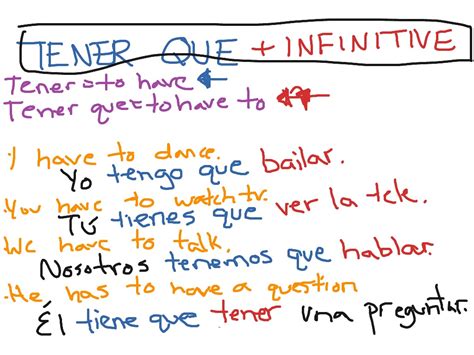 TENER QUE + INFINITIVE
Tener = to have
Tener que = to have to
I have to dance.
Yo tengo que bailar.
You have to watch tv.
Tú tienes que ver la tele.
We have to talk.
Nosotros tenemos que hablar.
He has to have a question
Él tiene que tener una preguntar.